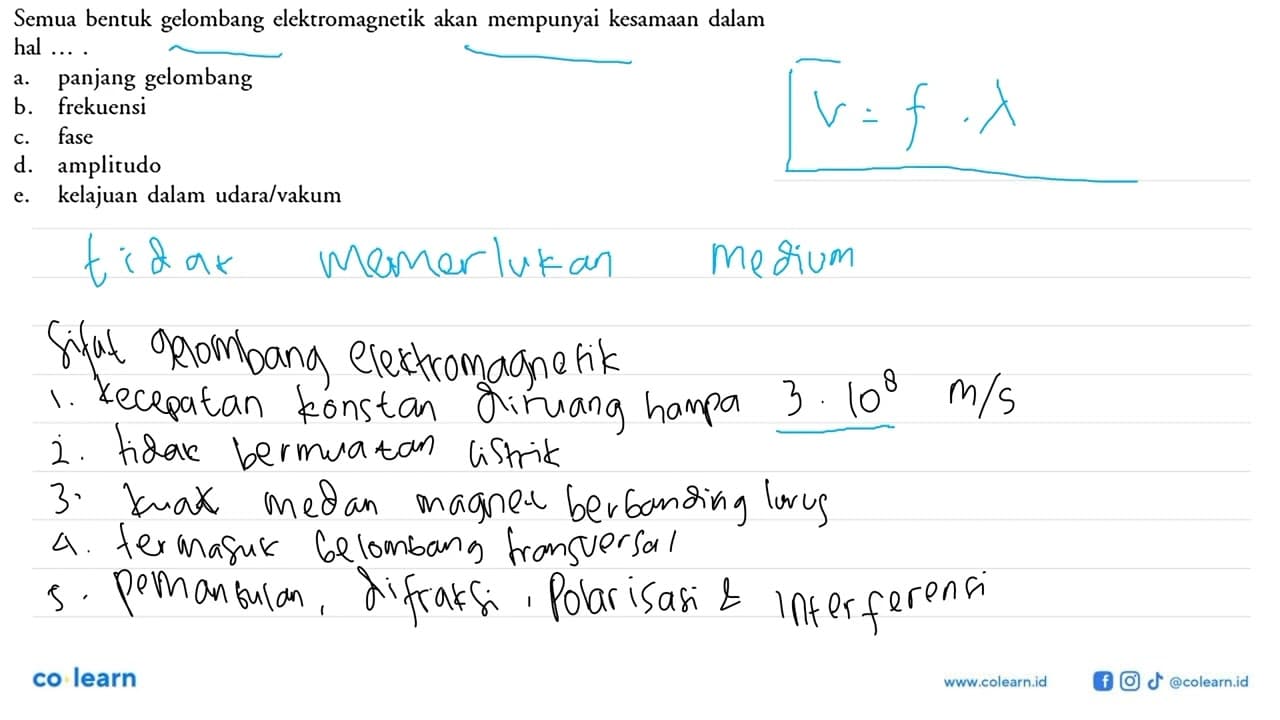 Semua bentuk gelombang elektromagnetik akan mempunyai kesamaan dalam
hal ... .
a. panjang gelombang
b. frekuensi
c. fase
d. amplitudo
e. kelajuan dalam udara/vakum
V = f . λ
tidak memerlukan medium
Sifat gelombang elektromagnetik
1. kecepatan konstan diruang hampa 3 . 10⁸ m/s
2. tidak bermuatan listrik
3. kuat medan magnet berbanding lurus
4. termasuk Gelombang transversal
5. pemantulan, difraksi, Polarisasi & Interferensi
co learn
www.colearn.id
@colearn.id